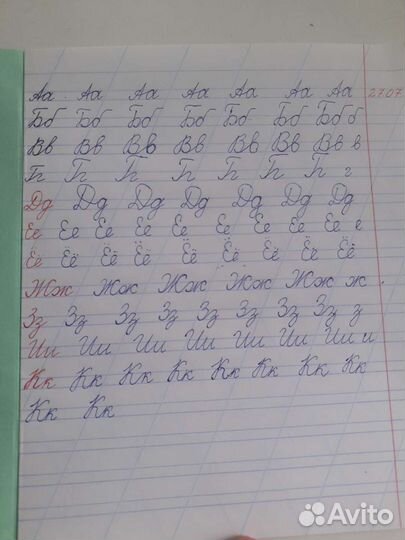 Аа Аа Аа Аа Аа Аа Аа 27.07
Бб Бб Бб Бб Бб Бб Бб б
Вв Вв Вв Вв Вв Вв Вв в
Гг Гг Гг Гг Гг Гг Гг г
Дд Дд Дд Дд Дд Дд Дд
Ее Ее Ее Ее Ее Ее Ее Ее е
Ёё Ёё Ёё Ёё Ёё Ёё Ёё Ёё
Жж Жж Жж Жж Жж ж
Зз Зз Зз Зз Зз Зз Зз Зз з
Ии Ии Ии Ии Ии Ии Ии и
Кк Кк Кк Кк Кк Кк Кк Кк
Кк Кк
Avito